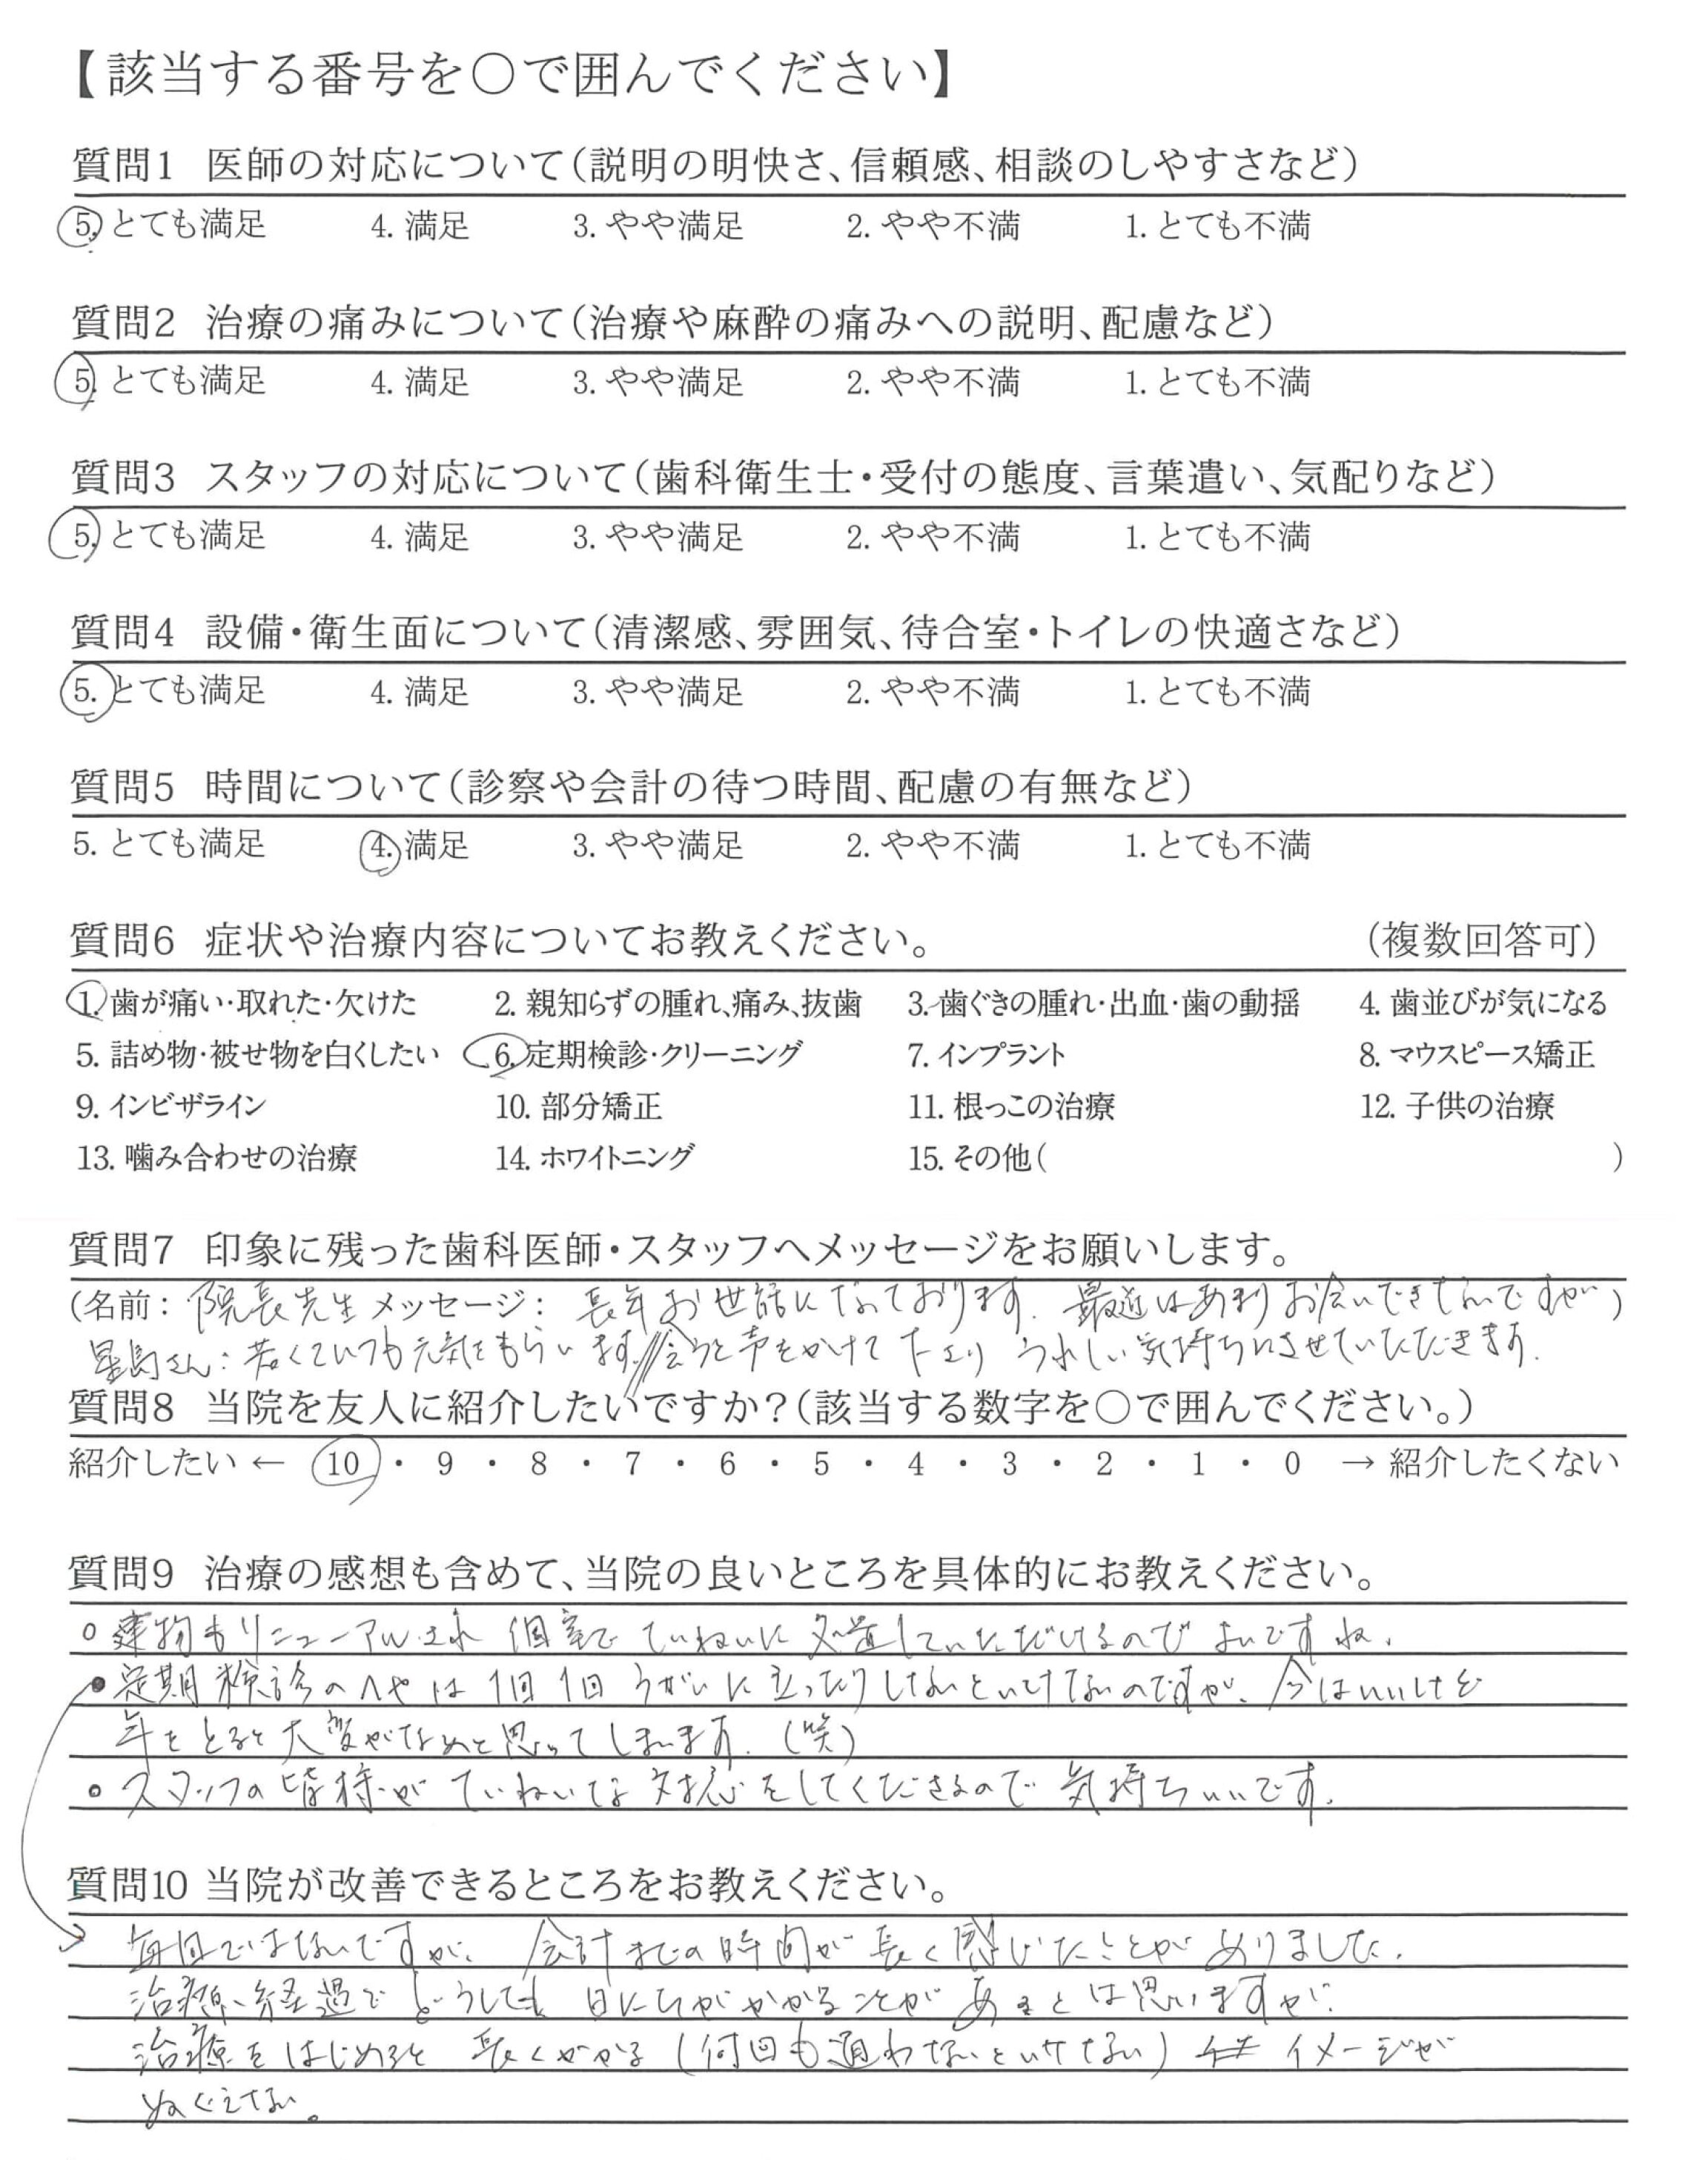 【該当する番号を〇で囲んでください】
質問1 医師の対応について(説明の明快さ、信頼感、相談のしやすさなど)
5. とても満足 4. 満足 3. やや満足 2. やや不満 1. とても不満
質問2 治療の痛みについて(治療や麻酔の痛みへの説明、配慮など)
5. とても満足 4. 満足 3. やや満足 2. やや不満 1. とても不満
質問3 スタッフの対応について(歯科衛生士・受付の態度、言葉遣い、気配りなど)
5. とても満足 4. 満足 3. やや満足 2. やや不満 1. とても不満
質問4 設備・衛生面について(清潔感、雰囲気、待合室・トイレの快適さなど)
5. とても満足 4. 満足 3. やや満足 2. やや不満 1. とても不満
質問5 時間について(診察や会計の待つ時間、配慮の有無など)
5. とても満足 4. 満足 3. やや満足 2. やや不満 1. とても不満
質問6 症状や治療内容についてお教えください。 (複数回答可)
1. 歯が痛い・取れた・欠けた 2. 親知らずの腫れ、痛み、抜歯 3. 歯ぐきの腫れ・出血・歯の動揺 4. 歯並びが気になる
5. 詰め物・被せ物を白くしたい 6. 定期検診・クリーニング 7. インプラント 8. マウスピース矯正
9. インビザライン 10. 部分矯正 11. 根っこの治療 12. 子供の治療
13. 噛み合わせの治療 14. ホワイトニング 15. その他( )
質問7 印象に残った歯科医師・スタッフへメッセージをお願いします。
(名前: 院長先生 メッセージ: 長年お世話になっております. 最近はあまりお会いできてないですが)
さん:若くていつも元気をもらいます。//会うと声をかけて下さり うれしい気持ちにさせていただきます.
質問8 当院を友人に紹介したいですか?(該当する数字を〇で囲んでください。)
紹介したい ← 10 ・ 9 ・ 8 ・ 7 ・ 6 ・ 5 ・ 4 ・ 3 ・ 2 ・ 1 ・ 0 → 紹介したくない
質問9 治療の感想も含めて、当院の良いところを具体的にお教えください。
○ 建物もリニューアルされ 個室で ていねいに 処置していただけるので よいですね.
● 定期検診のへやは 1回1回 うがいに立ったりしないといけないのですが、今はいいけど
年をとると大変だなぁと思ってしまいます. (笑)
● スタッフの皆様が ていねいな対応をしてくださるので 気持ちいいです.
質問10 当院が改善できるところをお教えください。
毎回ではないですが、会計までの時間が長く感じたことがありました.
治療、経過で どうしても 日にちがかかることがあるとは思いますが.
治療をはじめると 長くかかる (何回も通わないといけない) イメージが
ぬぐえない。